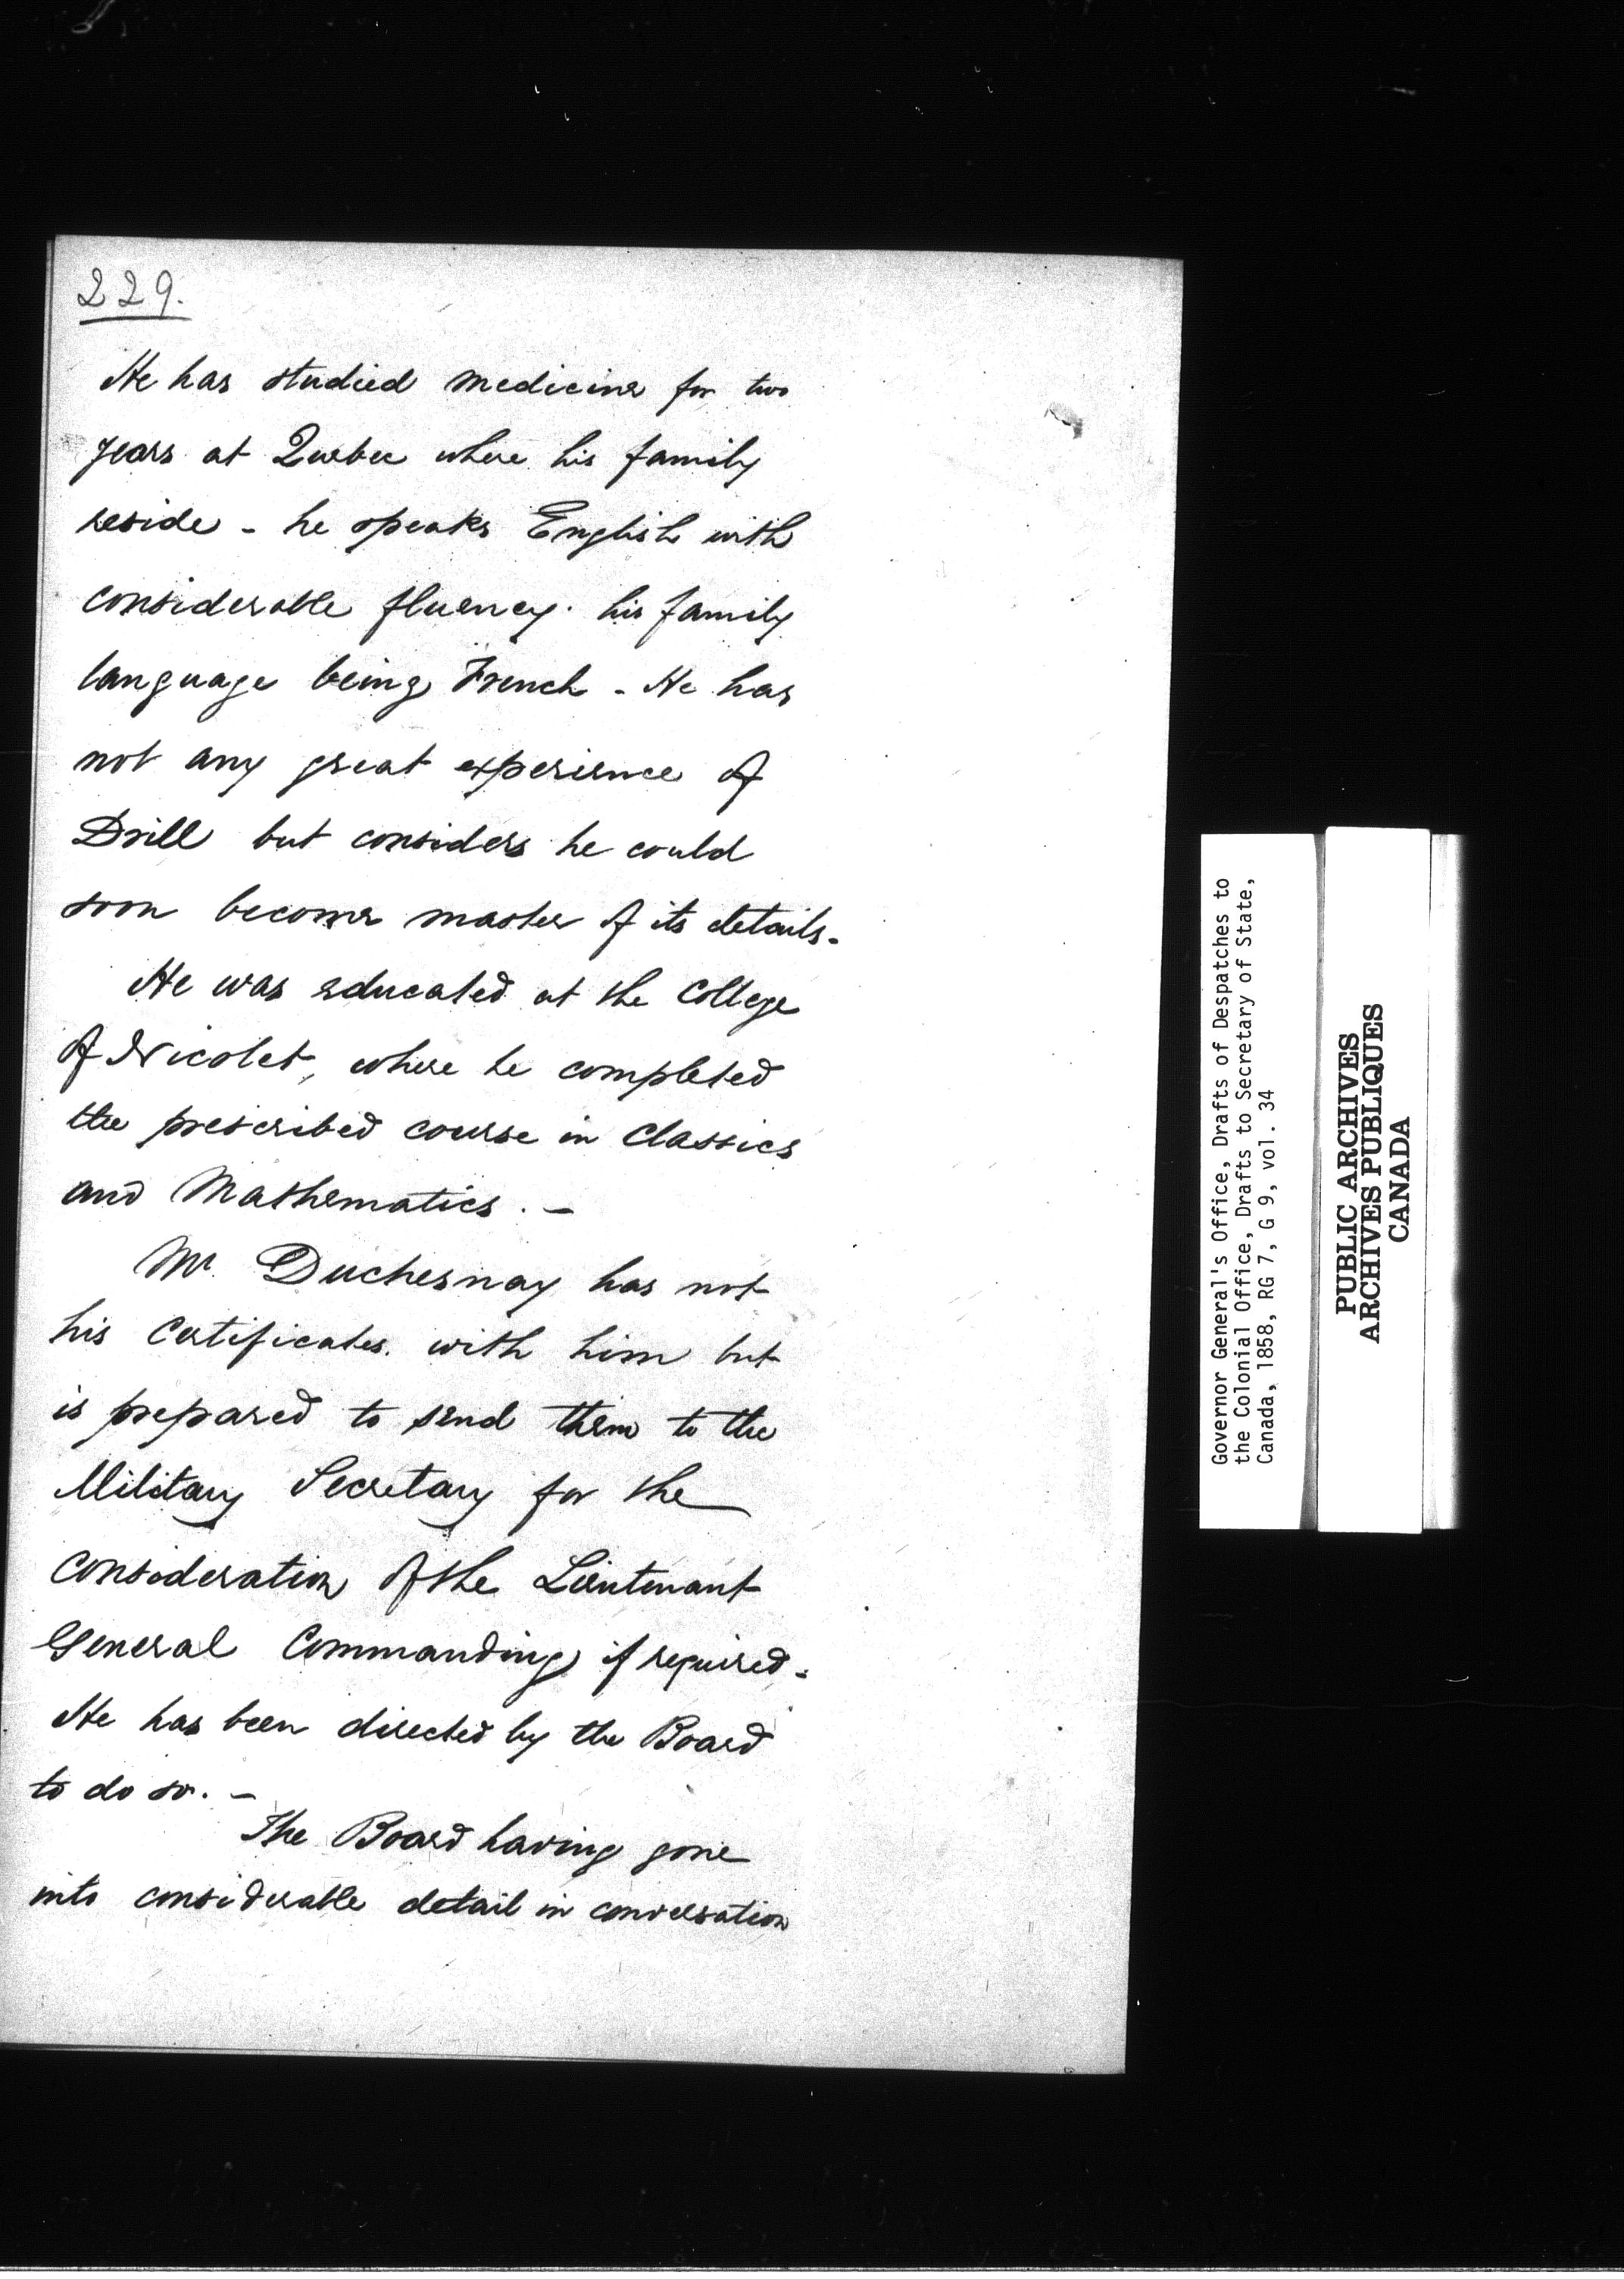 229.
He has studied medicine for two
years at Quebec where his family
reside - he speaks English with
considerable fluency. his family
language being French - He has
not any great experience of
Drill but considers he could
soon become master of its details.
He was educated at the College
of Nicolet, where he completed
the prescribed course in Classics
and Mathematics. -
Mr. Duchesnay has not
his Certificates. with him but
is prepared to send them to the
Military Secretary for the
consideration of the Lieutenant
General Commanding if required.
He has been directed by the Board
to do so. -
The Board having gone
into considerable detail in conversation
Governor General's Office, Drafts of Despatches to
the Colonial Office, Drafts to Secretary of State,
Canada, 1858, RG 7, G 9, vol. 34
PUBLIC ARCHIVES
ARCHIVES PUBLIQUES
CANADA